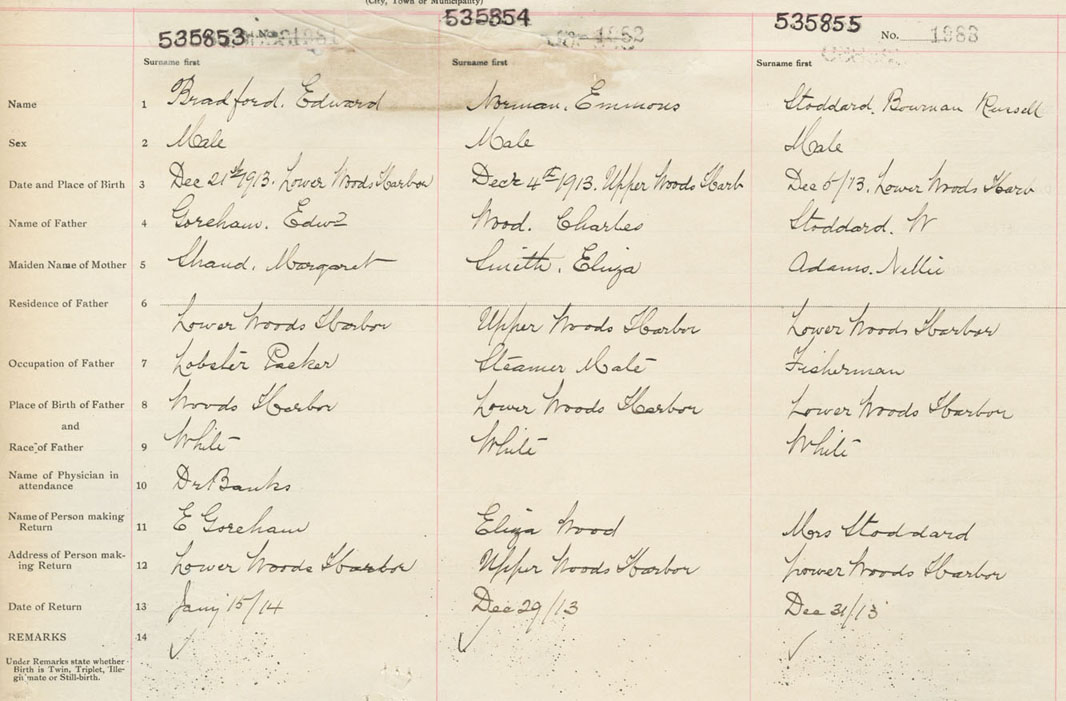 (City, Town or Municipality)
535853 No. 1981 535854 No. 1982 535855 No. 1983
Surname first Surname first Surname first
Name 1 Bradford. Edward Norman. Emmons Stoddard. Bowman Russell
Sex 2 Male Male Male
Date and Place of Birth 3 Dec 21st 1913. Lower Woods Harbor Decr 4th 1913. Upper Woods Harb Dec 6/13. Lower Woods Harb
Name of Father 4 Goreham. Edwd Wood. Charles Stoddard. W
Maiden Name of Mother 5 Shand. Margaret Smith. Eliza Adams. Nellie
Residence of Father 6
Lower Woods Harbor Upper Woods Harbor Lower Woods Harbor
Occupation of Father 7 Lobster Packer Steamer Mate Fisherman
Place of Birth of Father 8 Woods Harbor Lower Woods Harbor Lower Woods Harbor
and
Race of Father 9 White White White
Name of Physician in
attendance 10 Dr Banks
Name of Person making
Return 11 E Goreham Eliza Wood Mrs Stoddard
Address of Person mak-
ing Return 12 Lower Woods Harbor Upper Woods Harbor Lower Woods Harbor
Date of Return 13 Jany 15/14 Dec 29/13 Dec 31/13
REMARKS 14
Under Remarks state whether
Birth is Twin, Triplet, Ille-
gitimate or Still-birth.